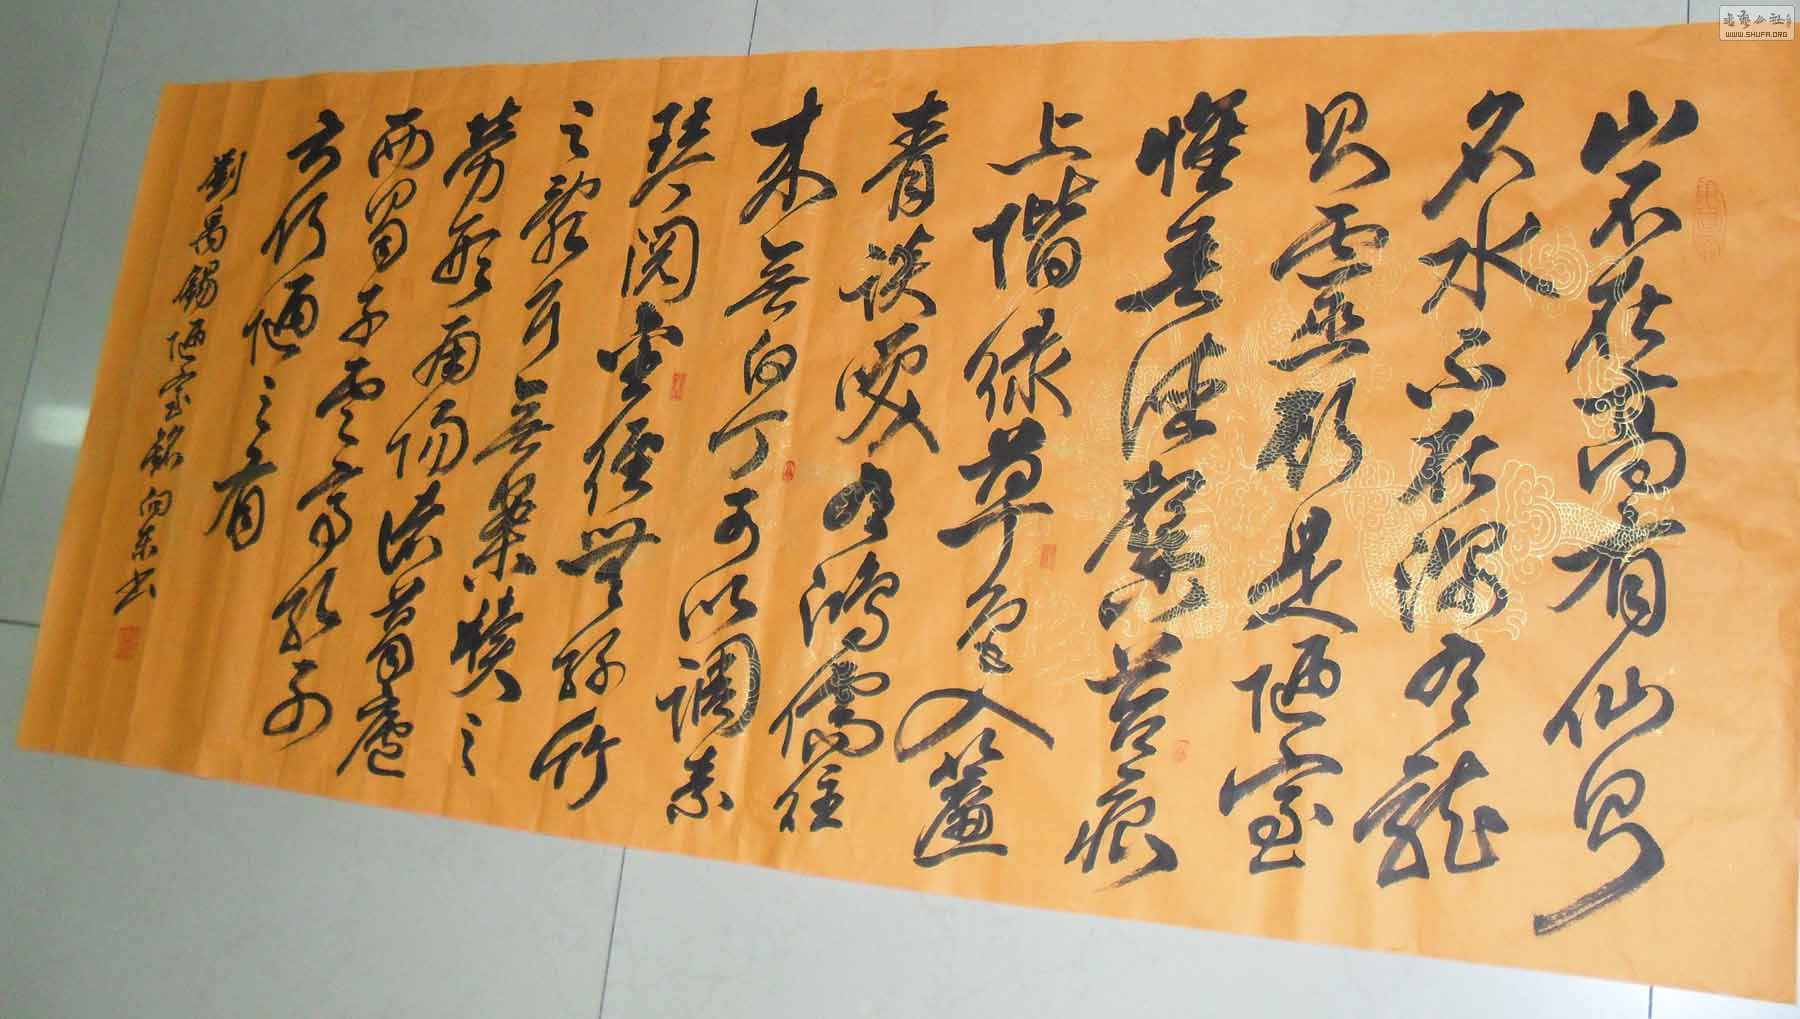 山不在高有仙则
名水不在深有龍
则靈斯是陋室
惟吾德馨苔痕
上階緑草色入簾
青談笑有鴻儒往
来無白丁可以調素
琴阅金經無絲竹
之亂耳無案牘之
勞形南陽諸葛廬
西蜀子雲亭孔子
云何陋之有
劉禹錫陋室銘向东书
WWW.SHUFA.ORG